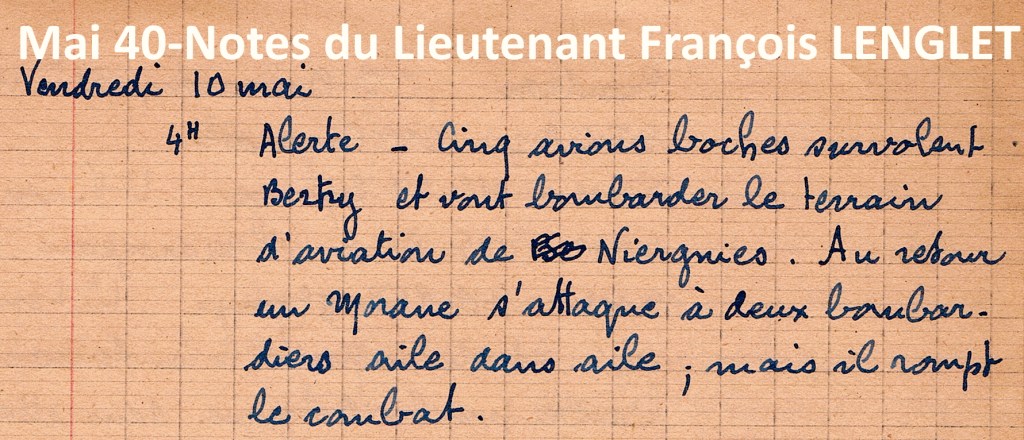 Mai 40-Notes du Lieutenant François LENGLET
Vendredi 10 mai
4H Alerte - Cinq avions boches survolent
Bertry et vont bombarder le terrain
d'aviation de Niergnies. Au retour
un Morane s'attaque à deux bombar-
diers aile dans aile ; mais il rompt
le combat.